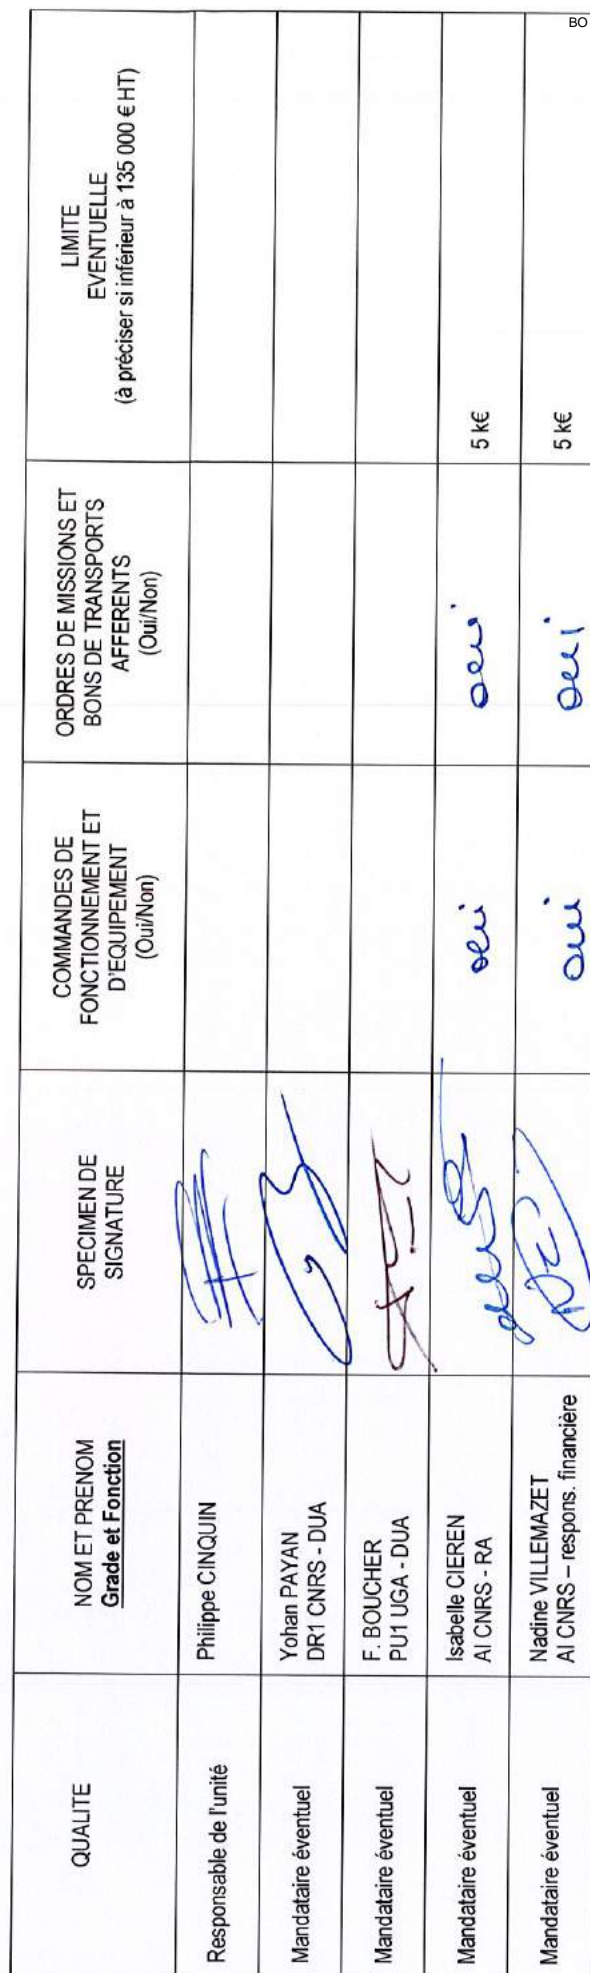 BO
QUALITE
NOM ET PRENOM
Grade et Fonction
SPECIMEN DE
SIGNATURE
COMMANDES DE
FONCTIONNEMENT ET
D'EQUIPEMENT
(Oui/Non)
ORDRES DE MISSIONS ET
BONS DE TRANSPORTS
AFFERENTS
(Oui/Non)
LIMITE
EVENTUELLE
(à préciser si inférieur à 135 000 € HT)
Responsable de l'unité
Philippe CINQUIN
Mandataire éventuel
Yohan PAYAN
DR1 CNRS - DUA
Mandataire éventuel
F. BOUCHER
PU1 UGA - DUA
Mandataire éventuel
Isabelle CIEREN
AI CNRS - RA
oui
oui
5 k€
Mandataire éventuel
Nadine VILLEMAZET
AI CNRS – respons. financière
oui
oui
5 k€